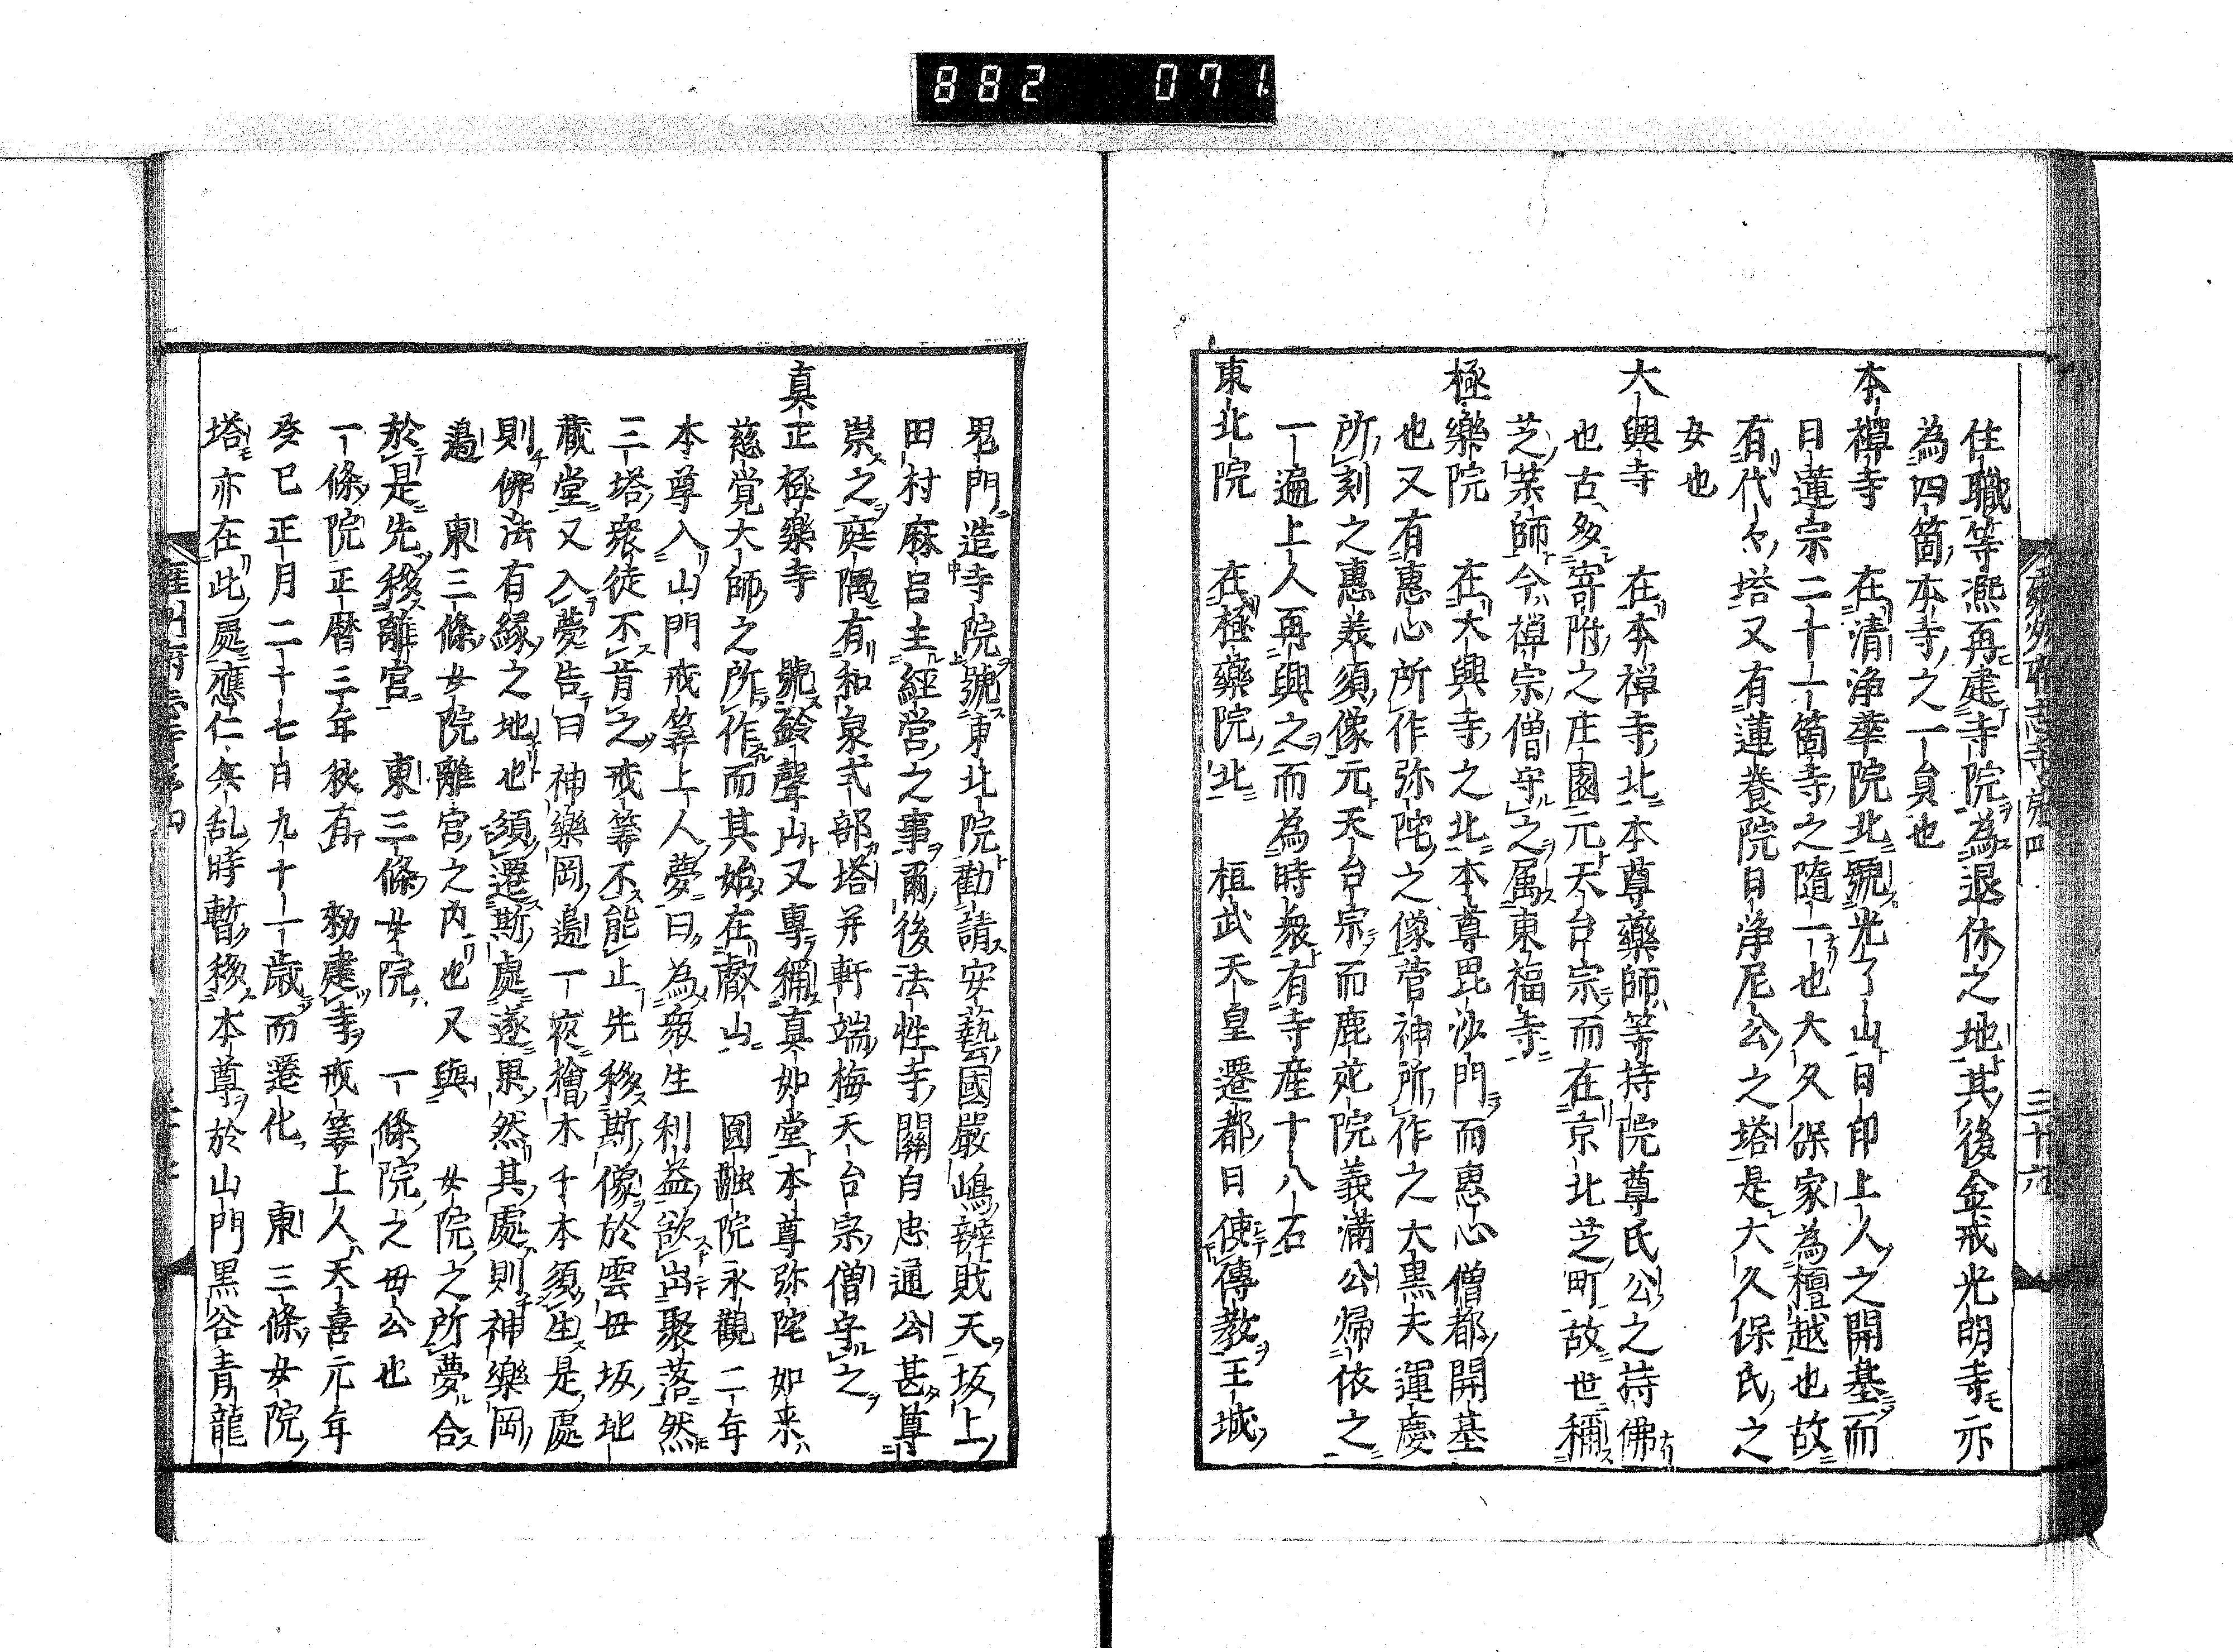 882 071
住職等凞再建寺院為退休之地其後金戒光明寺亦
為四箇本寺之一員也
本禪寺 在清浄華院北號光了山日印上人之開基而
日蓮宗二十一箇寺之隨一也大久保家為檀越也故
有代々塔又有蓮養院日浄尼公之塔是大久保氏之
女也
大興寺 在本禅寺北本尊藥師等持院尊氏公之持佛
也古多寄附之庄園元天台宗而在京北芝町故世稱
芝藥師今禅宗僧守之属東福寺
極樂院 在大興寺之北本尊毘沙門而惠心僧都開基
也又有惠心所作弥陀之像菅神所作之大黒夫運慶
所刻之惠美須像元天台宗而鹿苑院義滿公帰依之
一遍上人再興之而為時衆有寺産十八石
東北院 在極藥院北 桓武天皇遷都日使傳教王城
鬼門造寺院號東北院勸請安藝國嚴嶋辨財天坂上
田村麻呂主經営之事爾後法性寺關白忠通公甚尊
崇之庭隅有和泉式部塔并軒端梅天台宗僧守之
真正極樂寺 號鈴聲山又專稱真如堂本尊弥陀如来
慈覚大師之所作而其始在叡山 圓融院永觀二年
本尊入山門戒筭上人夢曰為衆生利益欲出聚落然
三塔衆徒不肯之戒筭不能止先移斯像於雲母坂地
藏堂又入夢告曰神樂岡邉一夜檜木千本須生是處
則佛法有縁之地也須遷斯處遂果然其處則神樂岡
邉 東三條女院離宮之内也又與 女院之所夢合
於是先移離宮 東三條女院 一條院之母公也
一條院正暦三年秋有 勅建寺戒筭上人天喜元年
癸巳正月二十七日九十一歳而遷化 東三條女院
塔亦在此處應仁兵乱時暫移本尊於山門黒谷青龍